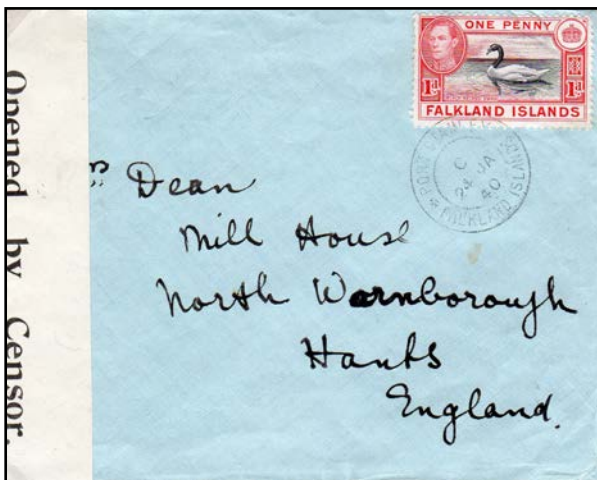 Opened by Censor.
ONE PENNY
1d 1d
FALKLAND ISLANDS
C
24 JA
40
FALKLAND ISLANDS
rs Dean
Mill House
North Warnborough
Hants
England.